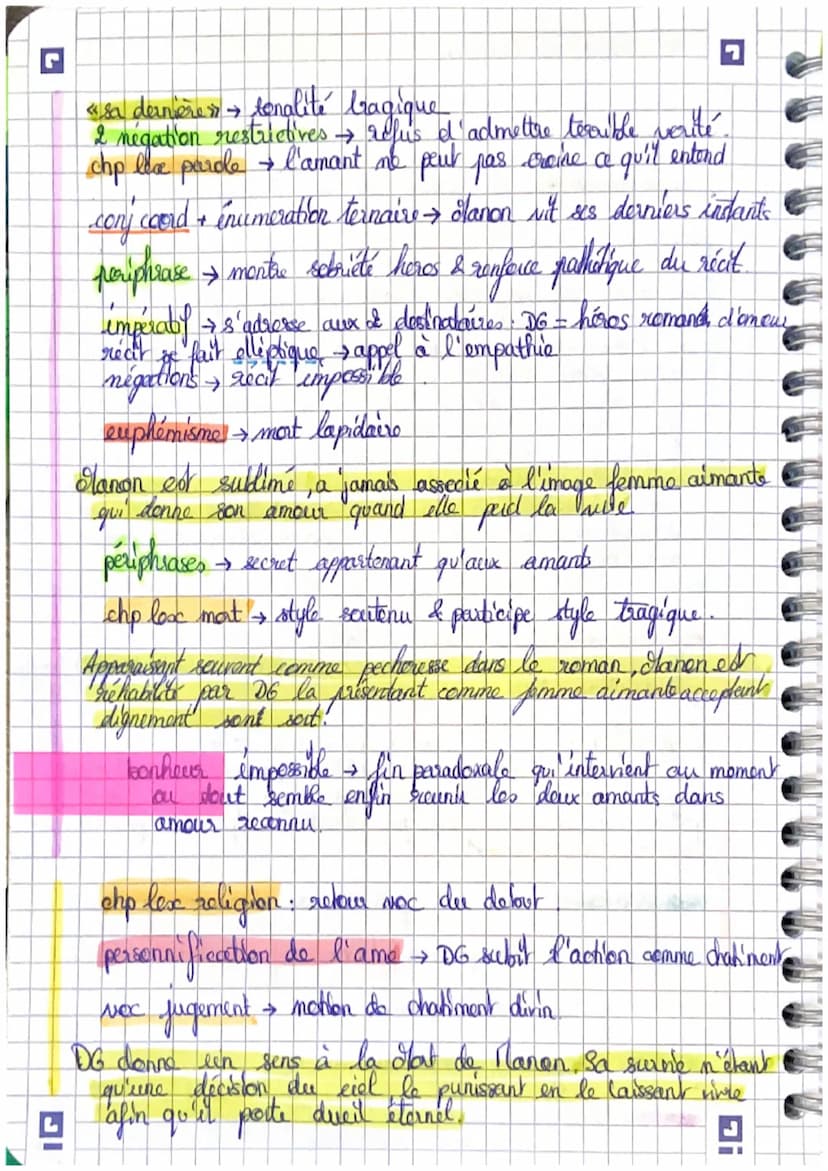 « sa dernière » → tonalité tragique
2 négation restrictives → refus d'admettre terrible verité.
chp lex parole → l'amant ne peut pas croire ce qu'il entend
conj coord + énumération ternaire → Manon vit ses derniers instants
periphrase → montre sobriété heros & renforce pathétique du récit
impératif → s'adresse aux 2 destinataires : DG = héros romans d'amour
récit se fait elleptique → appel à l'empathie
négations → récit impossible
euphémisme → mort lapidaire
Manon est sublimé, a jamais associé à l'image femme aimante
qui donne son amour quand elle perd la vie
périphrases → secret appartenant qu'aux amants
chp lex mort → style soutenu & participe style tragique.
Apparaisant souvent comme pecheresse dans le roman, Manon est
réhabilité par DG la présentant comme femme aimante acceptant
dignement sont sort.
bonheur impossible → fin paradoxale qui intervient au moment
ou tout semble enfin réunir les deux amants dans
amour reconnu.
chp lex religion : retour voc du debut.
personnification de l'ame → DG subit l'action comme chatiment
voc jugement → notion de chatiment divin
DG donne un sens à la Mort de Manon. Sa survie n'étant
qu'une décision du ciel le punissant en le laissant vivre
afin qu'il porte dueil éternel.